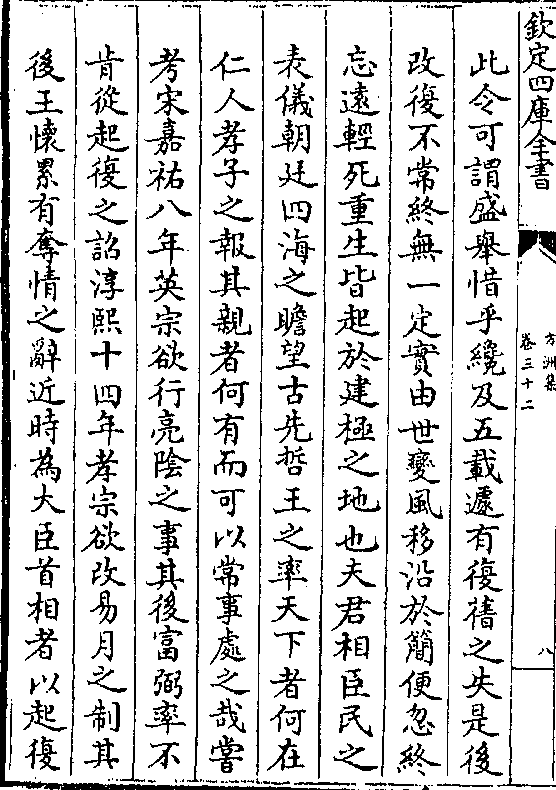 欽定四庫全書
方洲集
卷三十二
八
此令可謂盛舉惜乎纔及五載遽有復禫之失是後
改復不常終無一定實由世變風移沿於簡便忽終
忘遠輕死重生皆起於建極之地也夫君相臣民之
表儀朝廷四海之瞻望古先哲王之率天下者何在
仁人孝子之報其親者何有而可以常事處之哉嘗
考宋嘉祐八年英宗欲行亮陰之事其後富弼率不
肯從起復之詔淳熙十四年孝宗欲改易月之制其
後王懷累有奪情之辭近時為大臣首相者以起復